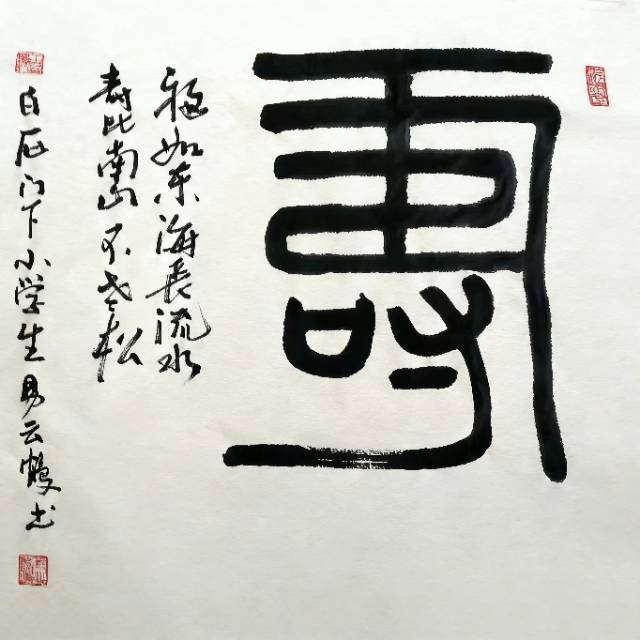 壽
福如东海長流水
寿比南山不老松
白石门下小学生易云鹤书